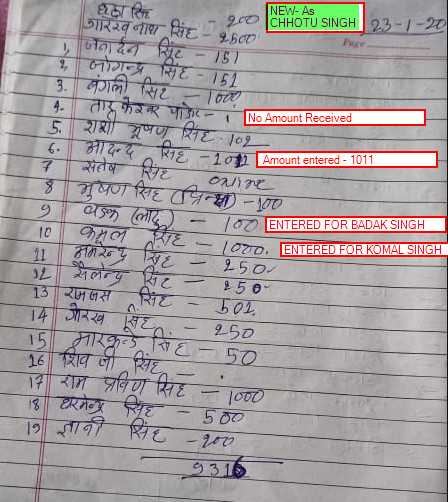 छोटा सिंह - 200
NEW- As
CHHOTU SINGH
23-1-20
Page
गोरखनाथ सिंह - 2500
1, जनार्दन सिंह - 151
2, जोगेन्द्र सिंह - 151
3. बंगली सिंह - 1000
4. ताड़केश्वर - .
No Amount Received
5. शशी भूषण सिंह - 102
6. सिंह - 1011
Amount entered - 1011
7 सिंह online
8 भुषण सिंह - 100
9 (लादु) - 100
ENTERED FOR BADAK SINGH
10 कमूल सिंह - 1000.
ENTERED FOR KOMAL SINGH
11 सिंह - 250-
12 सैलेन्द्र सिंह - 250-
13 रामजस सिंह - 501.
14 गोरख सिंह - 250
15 मारकन्डे सिंह - 50
16 शिव जी सिंह - .
17 राम प्रविण सिंह - 1000
18 धरमेन्द्र सिंह - 500
19 ज्ञानी सिंह - 200
9316